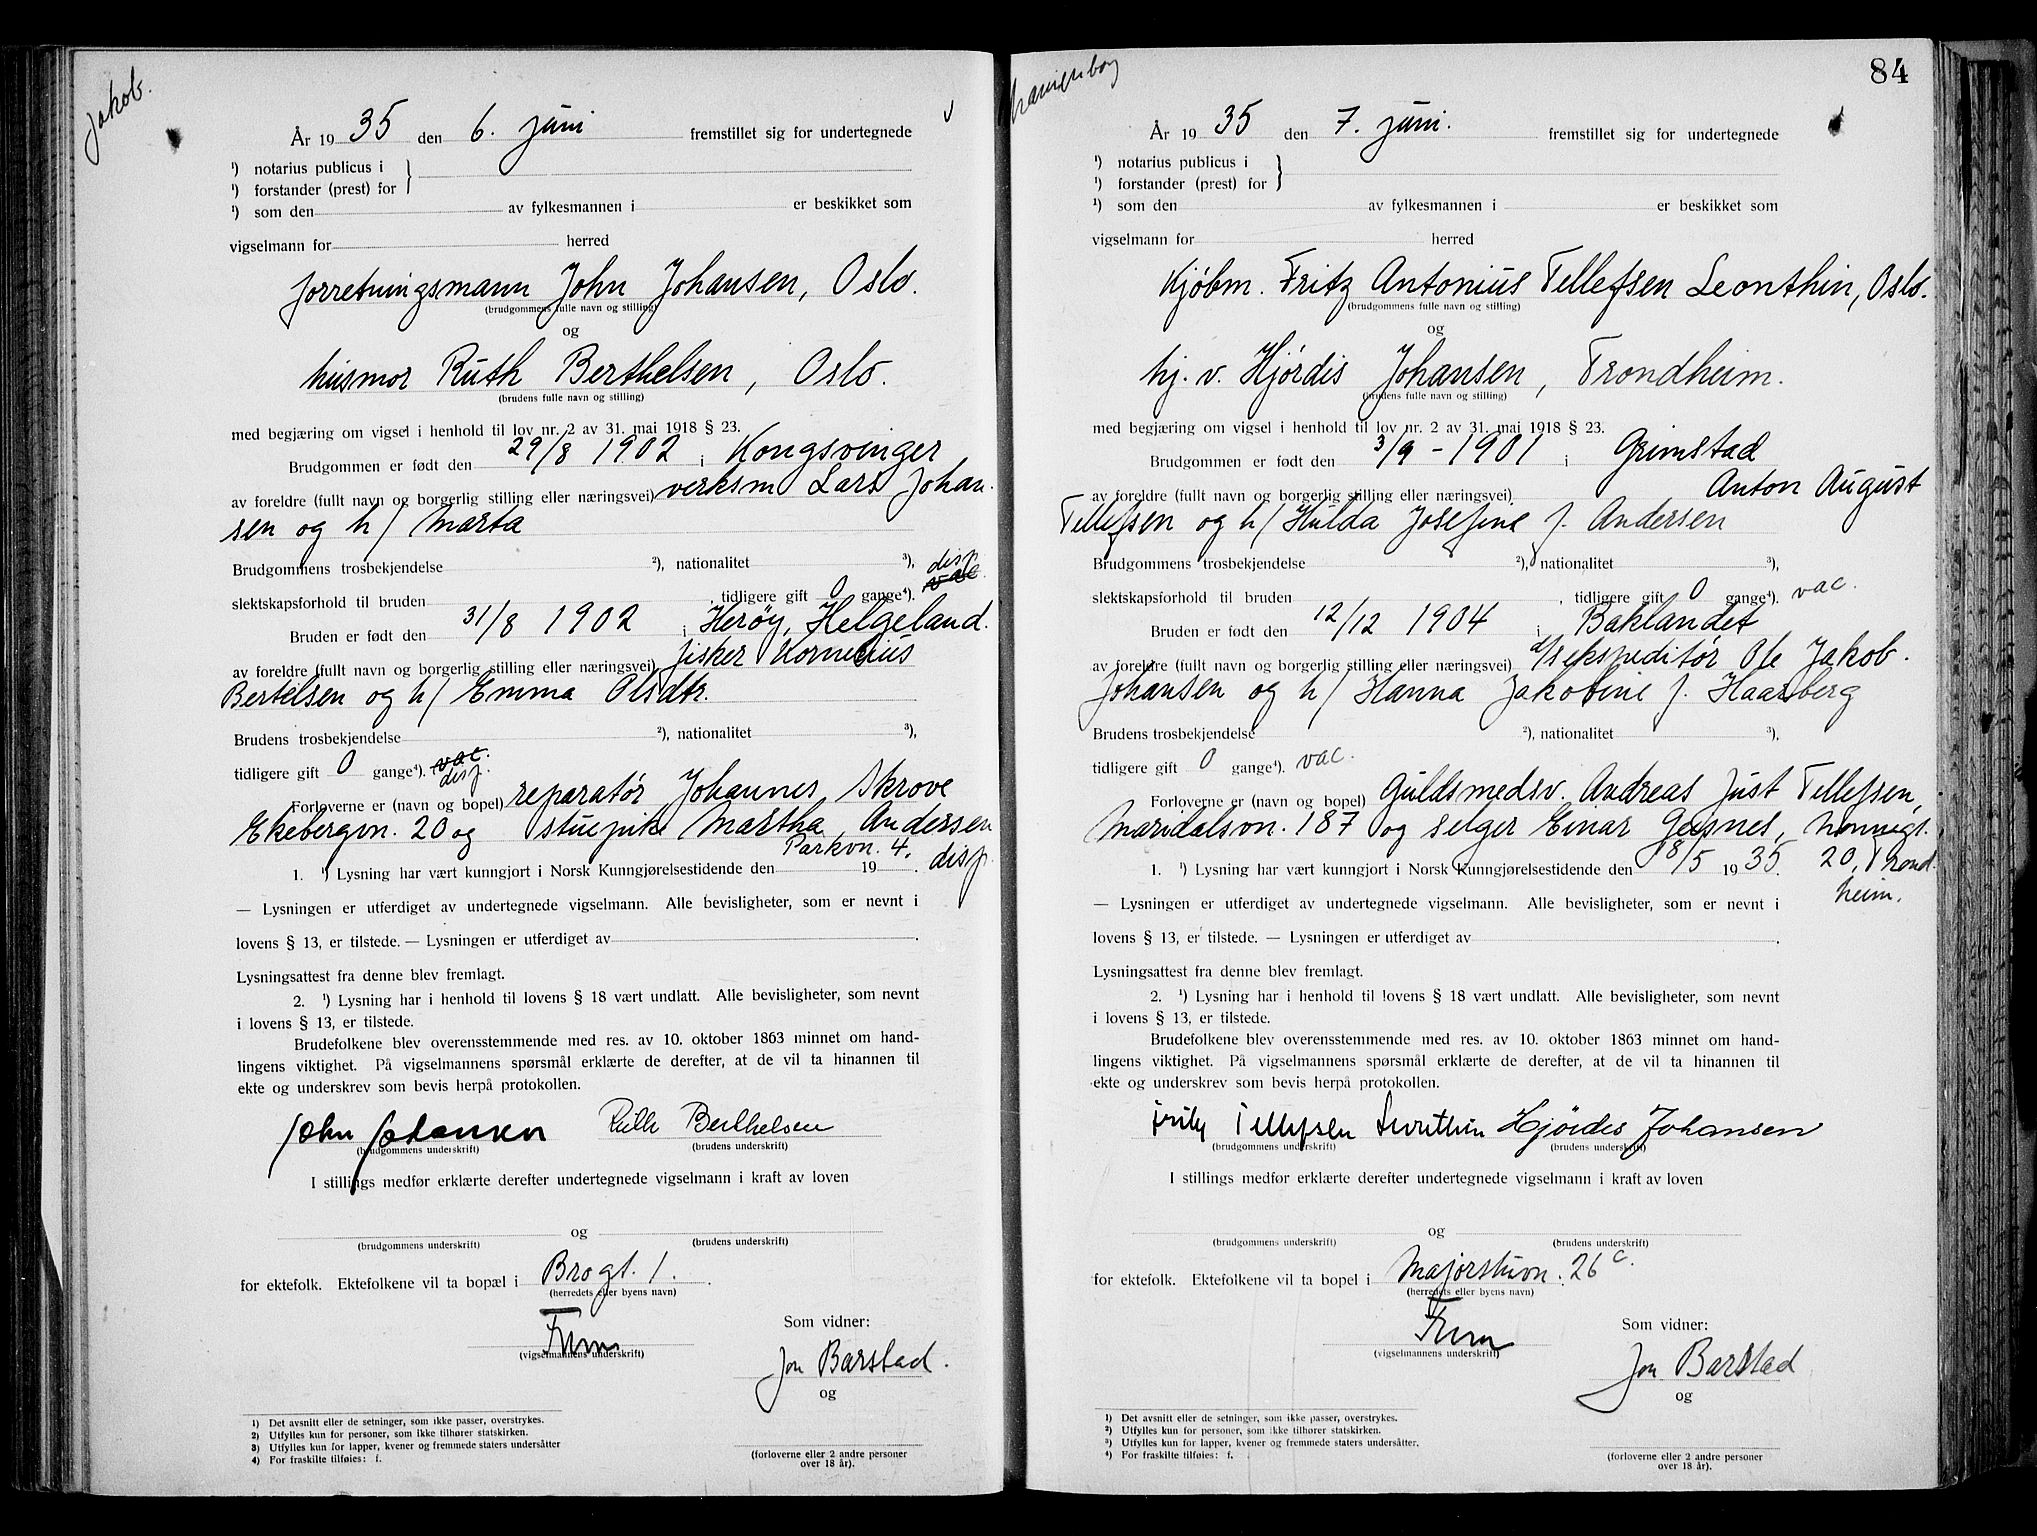 Jakob.
År 1935 den 6. juni fremstillet sig for undertegnede
¹) notarius publicus i
¹) forstander (prest) for
¹) som den av fylkesmannen i er beskikket som
vigselmann for herred
forretningsmann John Johansen, Oslo.
(brudgommens fulle navn og stilling)
og
husmor Ruth Berthelsen, Oslo.
(brudens fulle navn og stilling)
med begjæring om vigsel i henhold til lov nr. 2 av 31. mai 1918 § 23.
Brudgommen er født den 29/8 1902 i Kongsvinger
av foreldre (fullt navn og borgerlig stilling eller næringsvei) verksm Lars Johan
sen og h/ Marta
Brudgommens trosbekjendelse ²), nationalitet ³), disp.
slektskapsforhold til bruden , tidligere gift 0 gange⁴). vac.
Bruden er født den 31/8 1902 i Herøy, Helgeland.
av foreldre (fullt navn og borgerlig stilling eller næringsvei) fisker Kornelius
Bertelsen og h/ Emma Olsdtr.
Brudens trosbekjendelse ²), nationalitet ³),
tidligere gift 0 gange⁴). vac.
disp.
Forloverne er (navn og bopel) reparatør Johannes Skrove
Ekebergvn. 20 og stuepike Martha Andersen
Parkvn. 4.
1. ¹) Lysning har vært kunngjort i Norsk Kunngjørelsestidende den 19 . disp.
— Lysningen er utferdiget av undertegnede vigselmann. Alle bevisligheter, som er nevnt i
lovens § 13, er tilstede. — Lysningen er utferdiget av .
Lysningsattest fra denne blev fremlagt.
2. ¹) Lysning har i henhold til lovens § 18 vært undlatt. Alle bevisligheter, som nevnt
i lovens § 13, er tilstede.
Brudefolkene blev overensstemmende med res. av 10. oktober 1863 minnet om hand-
lingens viktighet. På vigselmannens spørsmål erklærte de derefter, at de vil ta hinannen til
ekte og underskrev som bevis herpå protokollen.
John Johansen Ruth Berthelsen
(brudgommens underskrift) (brudens underskrift)
I stillings medfør erklærte derefter undertegnede vigselmann i kraft av loven
og
(brudgommens underskrift) (brudens underskrift)
for ektefolk. Ektefolkene vil ta bopæl i Brogt. 1.
(herredets eller byens navn)
Som vidner:
(vigselmannens underskrift)
Jon Barstad.
og
1) Det avsnitt eller de setninger, som ikke passer, overstrykes.
2) Utfylles kun for personer, som ikke tilhører statskirken.
3) Utfylles kun for lapper, kvener og fremmede staters undersåtter
4) For fraskilte tilføies: f.
(forloverne eller 2 andre personer
over 18 år).
84
År 1935 den 7. juni. fremstillet sig for undertegnede
¹) notarius publicus i
¹) forstander (prest) for
¹) som den av fylkesmannen i er beskikket som
vigselmann for herred
Kjøbm. Fritz Antonius Tellefsen Leonthin, Oslo.
(brudgommens fulle navn og stilling)
og
hj. v. Hjørdis Johansen, Trondheim.
(brudens fulle navn og stilling)
med begjæring om vigsel i henhold til lov nr. 2 av 31. mai 1918 § 23.
Brudgommen er født den 3/9 - 1901 i Grimstad
av foreldre (fullt navn og borgerlig stilling eller næringsvei) Anton August
Tellefsen og h/ Hulda Josefine f. Andersen
Brudgommens trosbekjendelse ²), nationalitet ³),
slektskapsforhold til bruden , tidligere gift 0 gange⁴). vac.
Bruden er født den 12/12 1904 i Baklandet
av foreldre (fullt navn og borgerlig stilling eller næringsvei) d/s ekspeditør Ole Jakob
Johansen og h/ Hanna Jakobine f. Haarberg
Brudens trosbekjendelse ²), nationalitet ³),
tidligere gift 0 gange⁴). vac.
Forloverne er (navn og bopel) Guldsmedsv. Andreas Just Tellefsen,
Maridalsvn. 187 og selger Einar
1. ¹) Lysning har vært kunngjort i Norsk Kunngjørelsestidende den 8/5 1935. 20, Trond
heim.
— Lysningen er utferdiget av undertegnede vigselmann. Alle bevisligheter, som er nevnt i
lovens § 13, er tilstede. — Lysningen er utferdiget av .
Lysningsattest fra denne blev fremlagt.
2. ¹) Lysning har i henhold til lovens § 18 vært undlatt. Alle bevisligheter, som nevnt
i lovens § 13, er tilstede.
Brudefolkene blev overensstemmende med res. av 10. oktober 1863 minnet om hand-
lingens viktighet. På vigselmannens spørsmål erklærte de derefter, at de vil ta hinannen til
ekte og underskrev som bevis herpå protokollen.
Fritz Tellefsen Leonthin Hjördis Johansen
(brudgommens underskrift) (brudens underskrift)
I stillings medfør erklærte derefter undertegnede vigselmann i kraft av loven
og
(brudgommens underskrift) (brudens underskrift)
for ektefolk. Ektefolkene vil ta bopel i Majorstuvn. 26 c.
(herredets eller byens navn)
Som vidner:
(vigselmannens underskrift)
Jon Barstad
og
¹) Det avsnitt eller de setninger, som ikke passer, overstrykes.
²) Utfylles kun for personer, som ikke tilhører statskirken.
³) Utfylles kun for lapper, kvener og fremmede staters undersåtter.
⁴) For fraskilte tilføies: f.
(forloverne eller 2 andre personer
over 18 år).